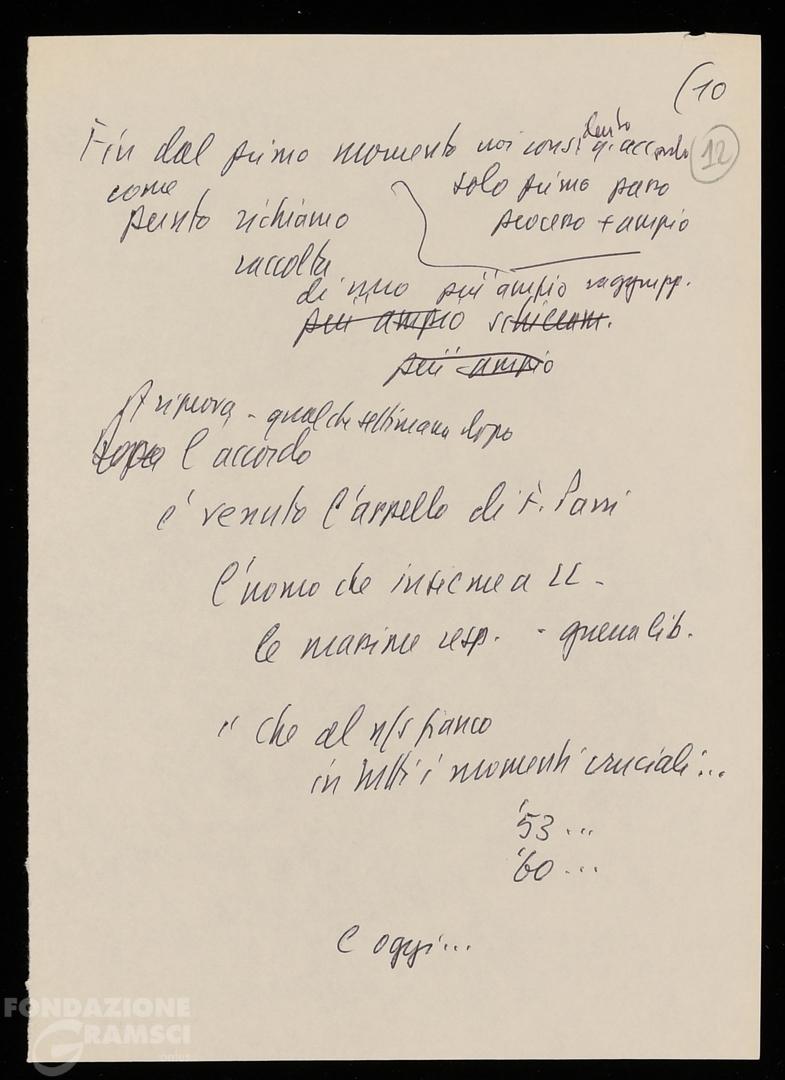 (10
12
Fin dal primo momento noi consideriamo q. accordo
come
solo primo passo
punto richiamo
processo + ampio
raccolta
di uno più ampio raggrupp.
più ampio schieram.
più ampio
A riprova - qualche settimana dopo
Dopo l'accordo
è venuto l'appello di F. Parri
l'uomo che insieme a LL -
le massime resp. - guerra lib.
" che al n/s fianco
in tutti i momenti cruciali...
'53...
'60...
E oggi...
FONDAZIONE
GRAMSCI
onlus